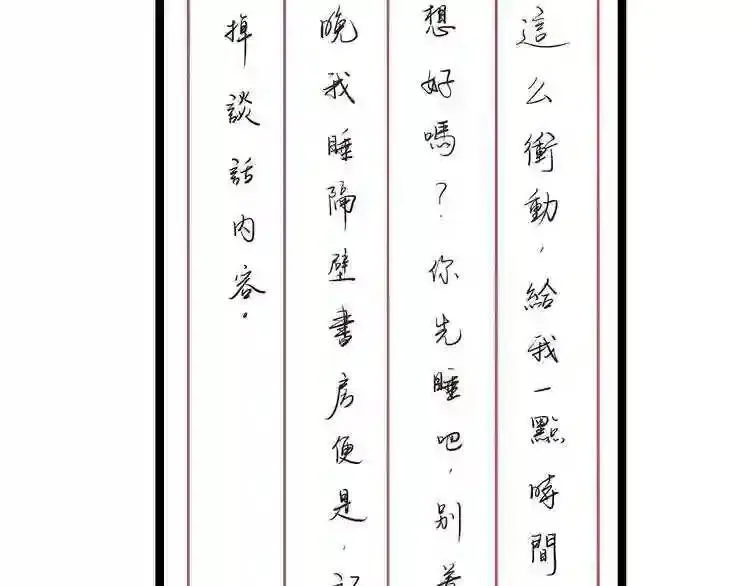 這么衝動，給我一點時間
想好嗎？你先睡吧，別
晚我睡隔壁書房便是，
掉談話内容。